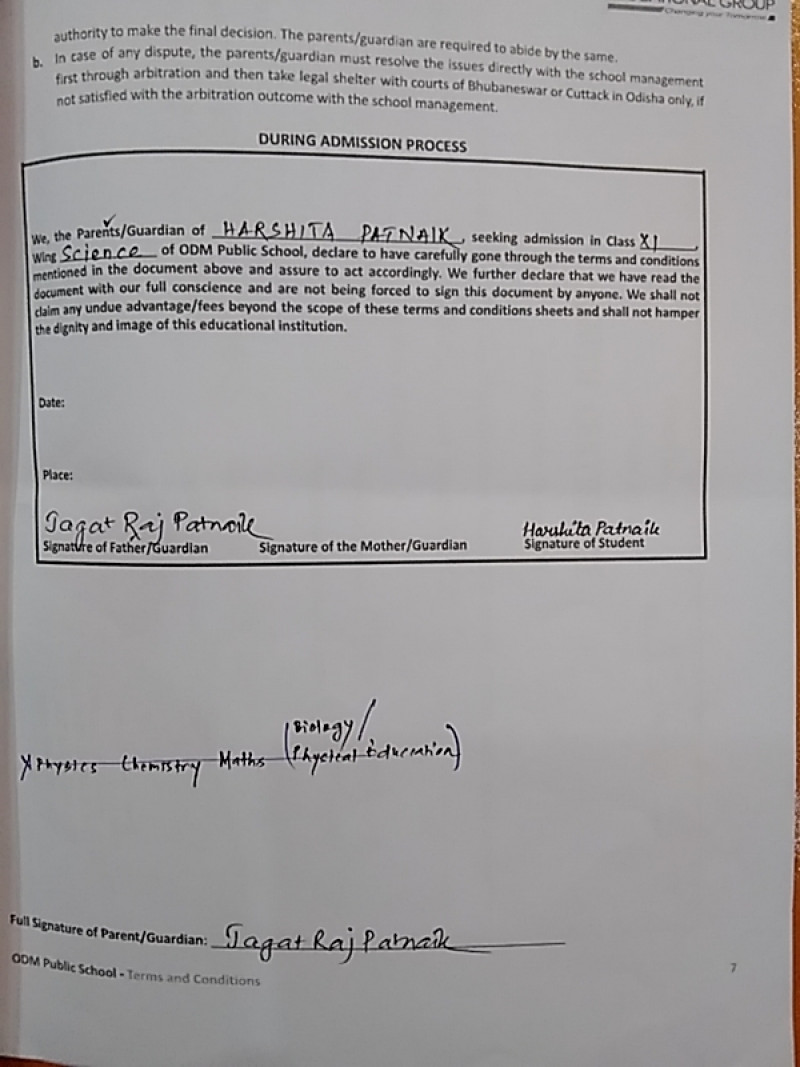 GROUP
Changing your Tomorrow
authority to make the final decision. The parents/guardian are required to abide by the same.
b. In case of any dispute, the parents/guardian must resolve the issues directly with the school management
first through arbitration and then take legal shelter with courts of Bhubaneswar or Cuttack in Odisha only, if
not satisfied with the arbitration outcome with the school management.
DURING ADMISSION PROCESS
We, the Parents/Guardian of HARSHITA PATNAIK, seeking admission in Class XI,
Wing Science of ODM Public School, declare to have carefully gone through the terms and conditions
mentioned in the document above and assure to act accordingly. We further declare that we have read the
document with our full conscience and are not being forced to sign this document by anyone. We shall not
claim any undue advantage/fees beyond the scope of these terms and conditions sheets and shall not hamper
the dignity and image of this educational institution.
Date:
Place:
Jagat Raj Patnaik Harshita Patnaik
Signature of Father/Guardian Signature of the Mother/Guardian Signature of Student
Biology/
Physics Chemistry Maths (Physical Education)
Full Signature of Parent/Guardian: Jagat Raj Patnaik
ODM Public School - Terms and Conditions 7